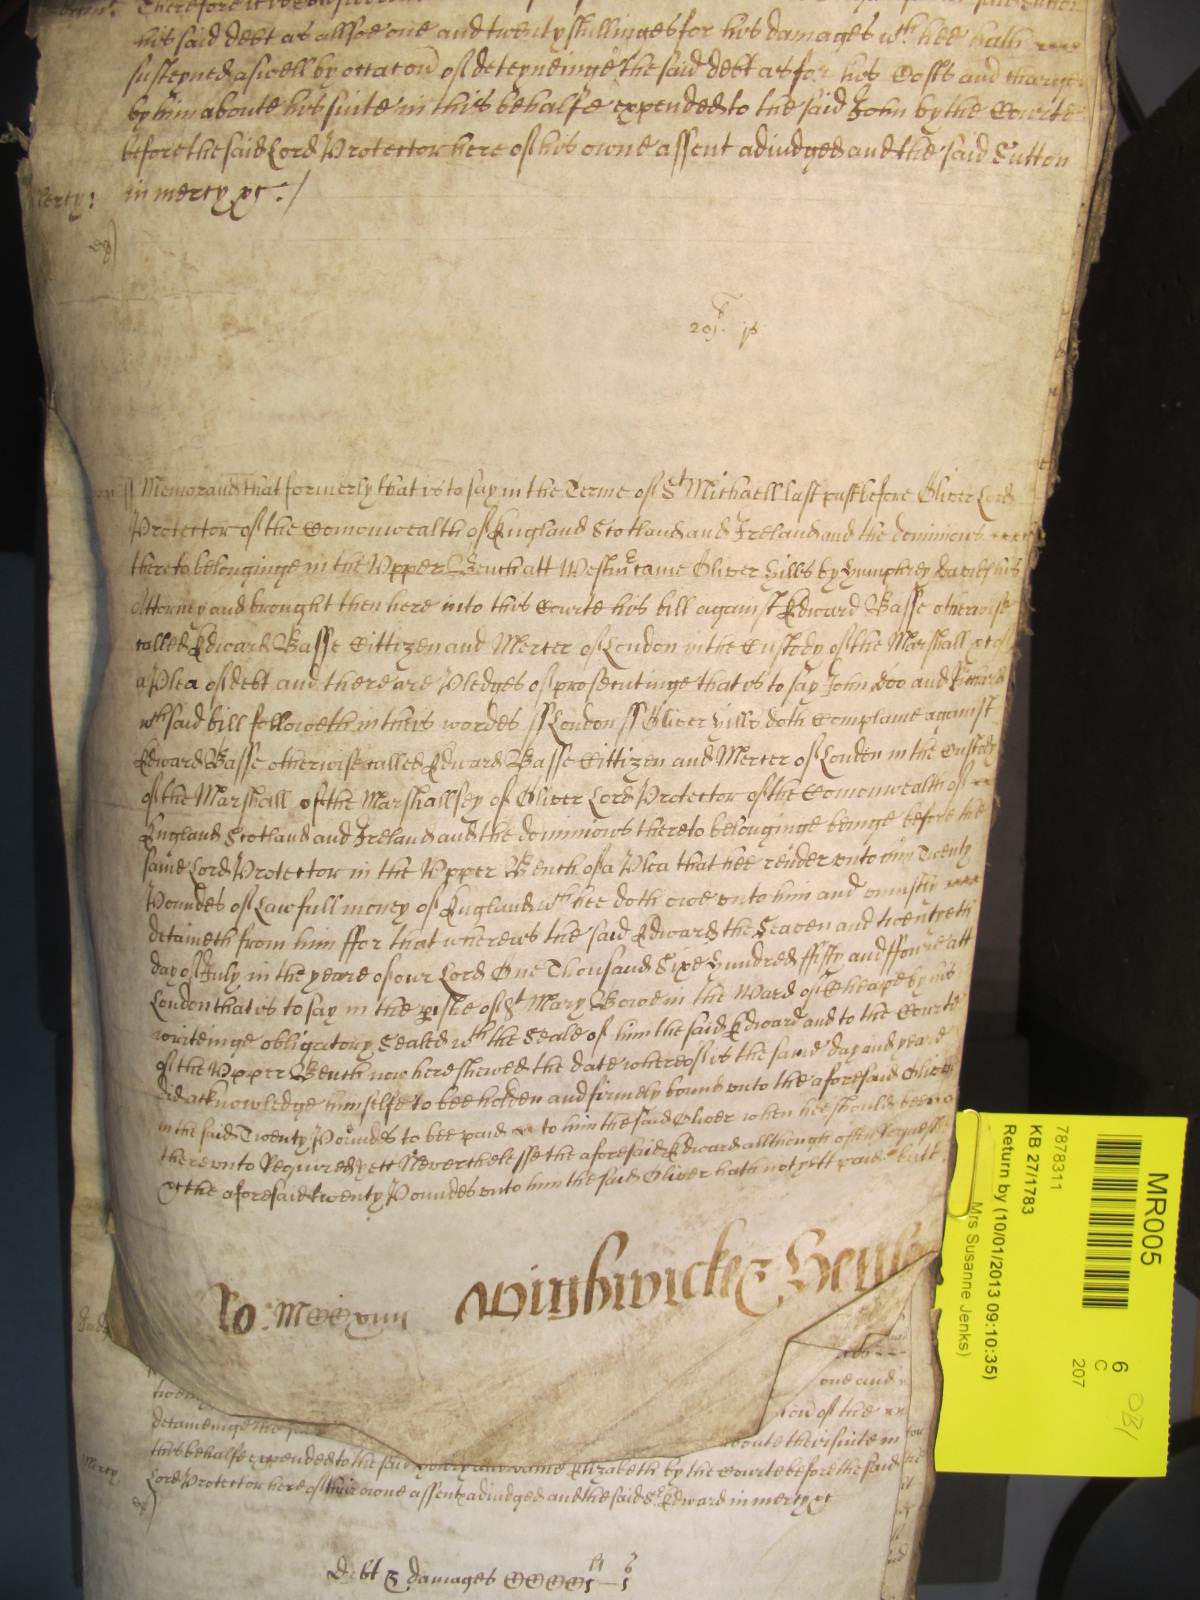 Therefore it is Considered
his said debt as allsoe one and twenty shillinges for his damages wch hee hath
susteyned aswell by occacon of deteyneinge the said debt as for his Costs and charges
by him aboute his suite in this behalfe expended to the said John by the Courte
before the said Lord Protector here of his owne assent adiudged and the said Sutton
Mercy: in mercy &c ./
20s. js
Memorand that formerly that is to say in the Terme of St Michaell last past before Oliver Lord
Protector of the Comonwealth of England Scotland and Ireland and the dominions
thereto belonginge in the Upper Bench att Westm came Oliver Hills by Humphrey Davies his
Attorney and brought then here into this Courte his bill against Edward Basse otherwise
called Edward Basse Cittizen and Mercer of London in the Custody of the Marshall &c of
a Plea of debt and there are Pledges of prosecutinge that is to say John Doo and Richard
wch said bill followeth in theis wordes ss London ss Oliver Hills doth Complaine against
Edward Basse otherwise called Edward Basse Cittizen and Mercer of London in the Custody
of the Marshall of the Marshallsey of Oliver Lord Protector of the Comonwealth of
England Scotland and Ireland and the dominions thereto belonginge beinge before the
same Lord Protector in the Upper Bench of a Plea that hee render unto him Twenty
Poundes of Lawfull money of England wch hee doth owe unto him and uniustly
detaineth from him ffor that whereas the said Edward the Seaven and twentyeth
day of July in the yeare of our Lord One Thousand Sixe Hundred ffifty and ffoure att
London that is to say in the pishe of St Mary Bowe in the Ward of Cheape by his
writeinge obligatory Sealed wth the Seale of him the said Edward and to the Courte
of the Upper Bench now here shewed the date whereof is the same day and yeare
did acknowledge himselfe to bee holden and firmely bound unto the aforesaid Oliver
in the said Twenty Poundes to bee paid to him the said Oliver when hee should bee
thereunto Required yett Neverthelesse the aforesaid Edward allthough often Requested
the aforesaid twenty Poundes unto him the said Oliver hath not yett paid butt
Ro: Wightwicke &
one and
con of the
detaineinge the
aboute their suite in
this behalfe expended to the said Elizabeth by the Courte before the said
Mercy Lord Protector here of their owne assent adiudged and the said Edward in mercy &c
Debt & damages
MR005
6
C
207
7878311
KB 27/1783
Return by (10/01/2013 09:10:35)
Mrs Susanne Jenks)